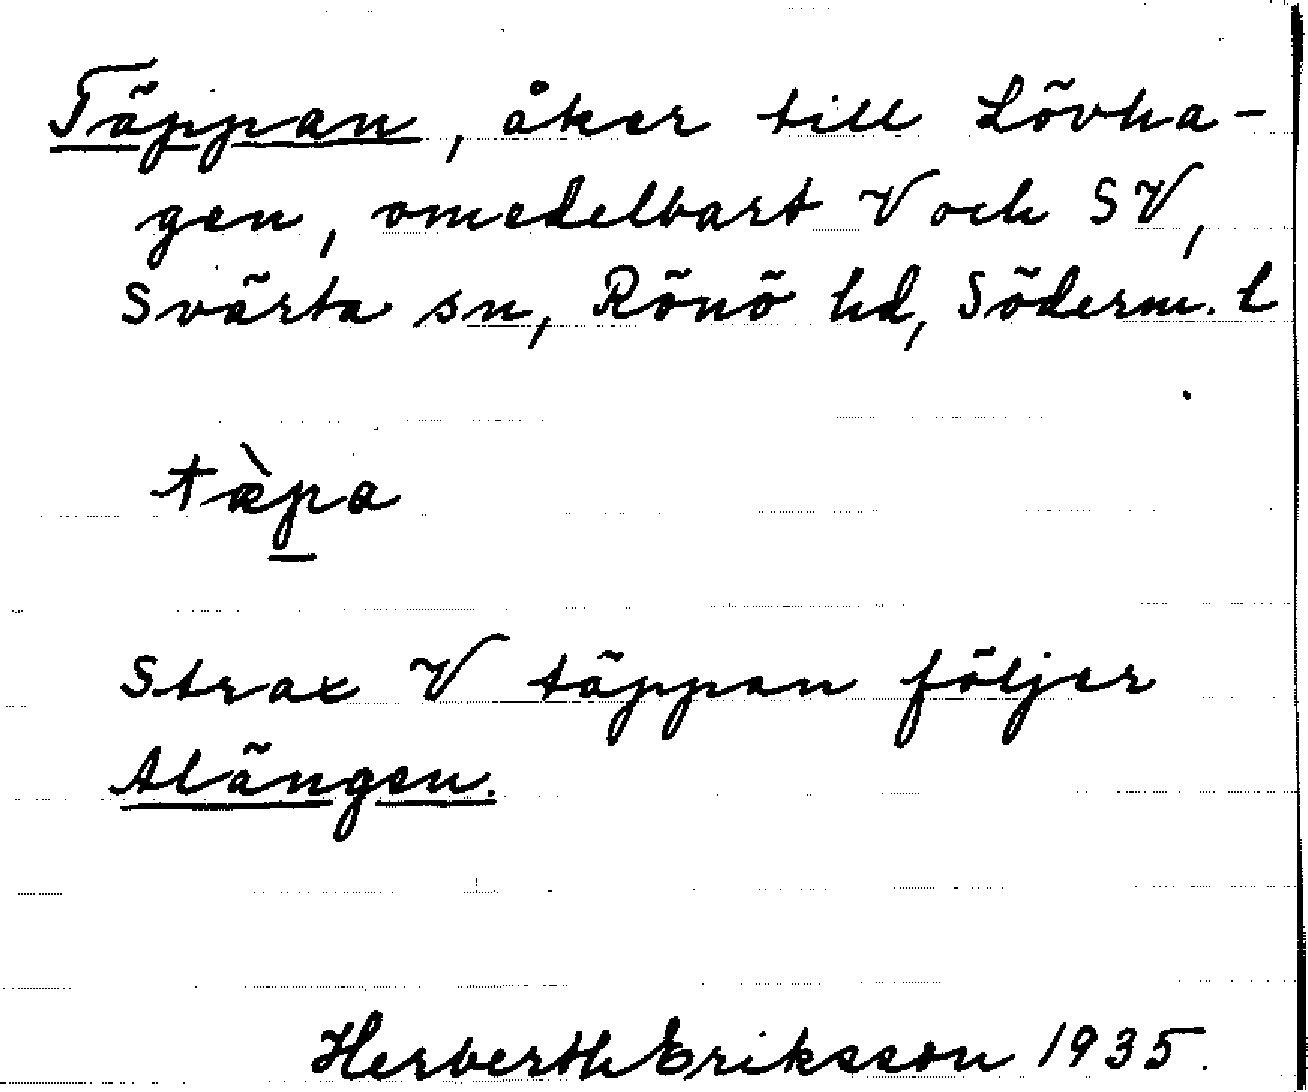 Täppan, åker till Lövha-
gen, omedelbart V och SV,
Svärta sn, Rönö hd, Söderm. l
tæ̀pa
Strax V täppan följer
Alängen.
Herberth Eriksson 1935.